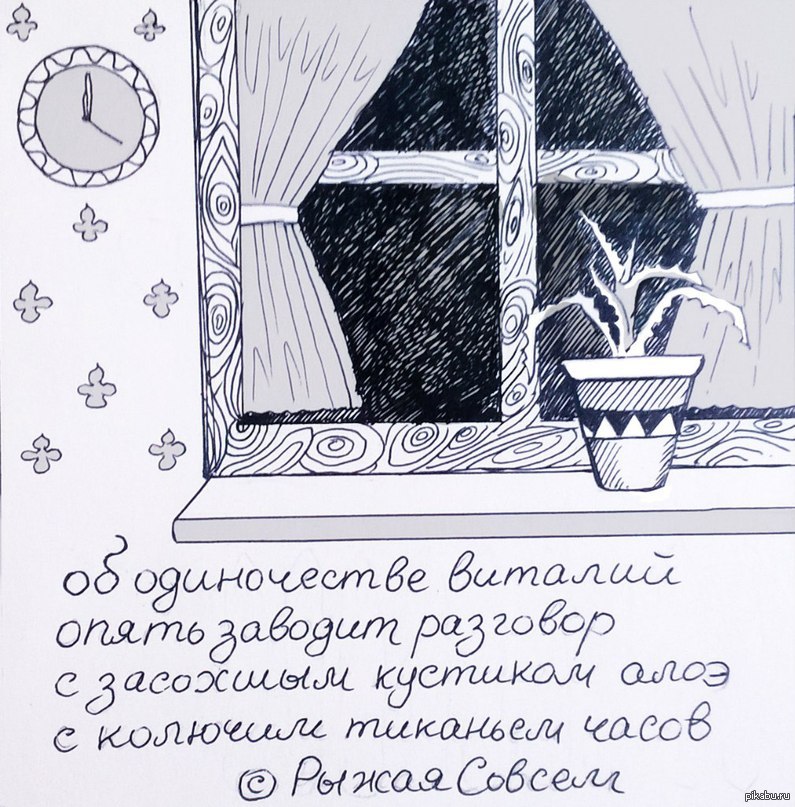 об одиночестве виталий
опять заводит разговор
с засохшым кустиком алоэ
с колючим тиканьем часов
© Рыжая Совсем
pikabu.ru